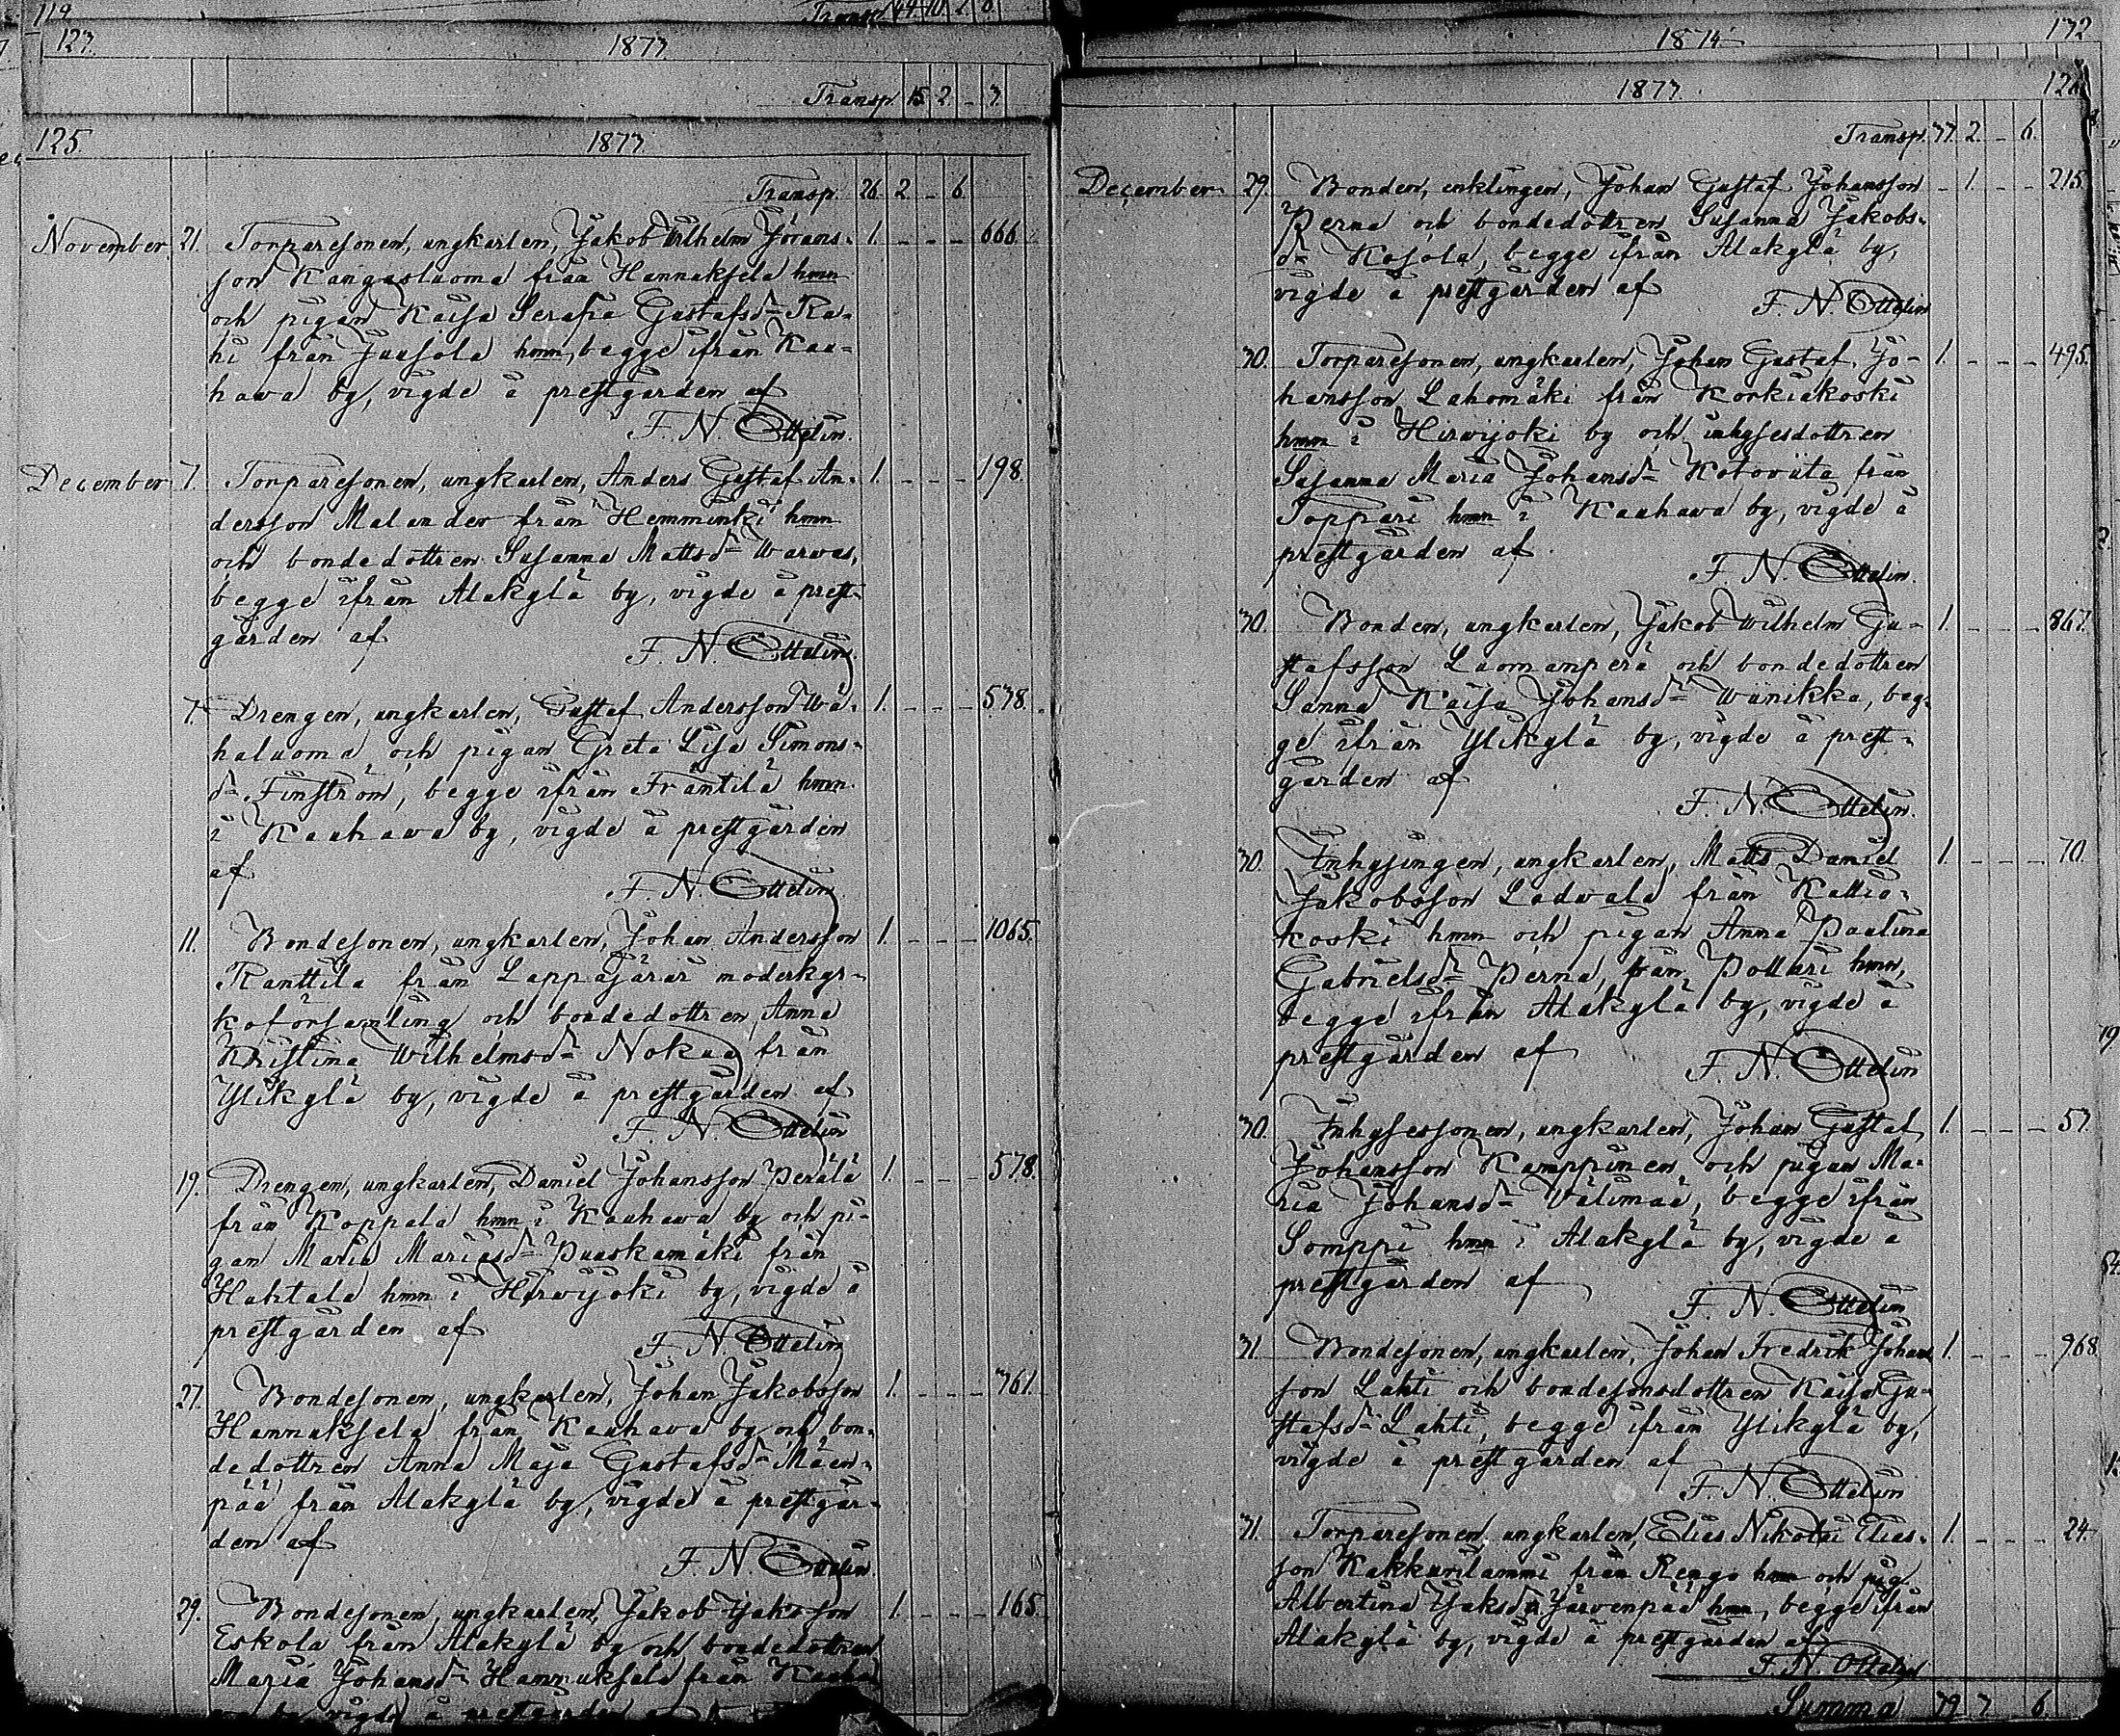 119. Transp. 44. 10. 2. 8.
127. 1873.
Transp. 15. 2. - 3.
125. 1873
Transp. 26. 2. - 6.
November 21. Torparesonen, ungkarlen, Jakob Wilhelm Görans- 1. - - - 666.
son Kangasluoma från Hannuksela hmn
och pigan Kaisa Serafia Gustafsdr Ra-
hi från Juusola hmn, begge ifrån Kau-
hava by, vigde å prestgården af
F. N. Ottelin.
December 7. Torparesonen, ungkarlen, Anders Gustaf An- 1. - - - 198.
dersson Malander från Hemminki hmn
och bondedottren Susanna Mattsdr Warvas,
begge ifrån Alakylä by, vigde å prest-
gården af
F. N. Ottelin.
7. Drengen, ungkarlen, Gustaf Andersson Wä- 1. - - - 578.
haluoma och pigan Greta Lisa Simons-
dr Finström, begge ifrån Fräntilä hmn
i Kauhava by, vigde å prestgården
af
F. N. Ottelin.
11. Bondesonen, ungkarlen, Johan Andersson 1. - - - 1065.
Ranttila från Lappajärvi moderkyr-
koförsamling och bondedottren Anna
Kristina Wilhelmsdr Nokua från
Ylikylä by, vigde å prestgården af
F. N. Ottelin
19. Drengen, ungkarlen, Daniel Johansson Perälä 1. - - - 578.
från Koppala hmn i Kauhava by och pi-
gan Maria Mariasdr Puuskamäki från
Hahtala hmn i Hirvijoki by, vigde å
prestgården af
F. N. Ottelin
27. Bondesonen, ungkarlen, Johan Jakobsson 1. - - - 761.
Hannuksela från Kauhava by och bon-
dedottren Anna Maja Gustafsdr Mäen-
pää från Alakylä by, vigde å prestgår-
den af
F. N. Ottelin.
29. Bondesonen, ungkarlen, Jakob Jaksson 1. - - - 165.
Eskola från Alakylä by och bondedottren
Maria Johansdr Hannuksela från Kauha
by, vigde å prestgården
1874. 132
1873. 128
Transp. 37. 2. - 6.
December 29. Bonden, enklingen, Johan Gustaf Johansson - 1. - - 215.
Perna och bondedottren Susanna Jakobs-
dr Kosola, begge ifrån Alakylä by,
vigde å prestgården af
F. N. Ottelin
30. Torparesonen, ungkarlen, Johan Gustaf Jo- 1. - - - 495.
hansson Lahomäki från Korkiakoski
hmn i Hirvijoki by och inhysesdottren
Susanna Maria Johansdr Kotoviita från
Toppari hmn i Kauhava by, vigde å
prestgården af
F. N. Ottelin.
30. Bonden, ungkarlen, Jakob Wilhelm Gu- 1. - - - 867.
stafsson Luomanperä och bondedottren
Sanna Kaisa Johansdr Wiinikka, beg-
ge ifrån Ylikylä by, vigde å prest-
gården af
F. N. Ottelin.
30. Inhysingen, ungkarlen, Matts Daniel 1. - - - 70.
Jakobsson Ladvala från Kallio-
koski hmn och pigan Anna Paulina
Gabrielsdr Perna, från Pollari hmn,
begge ifrån Alakylä by, vigde å
prestgården af
F. N. Ottelin
30. Inhysessonen, ungkarlen, Johan Gustaf 1. - - - 57.
Johansson Kamppinen och pigan Ma-
ria Johansdr Välimaa, begge ifrån
Somppi hmn i Alakylä by, vigde å
prestgården af
F. N. Ottelin
31. Bondesonen, ungkarlen, Johan Fredrik Johans 1. - - - 968.
son Lahti och bondesonsdottren Kaisa Gu-
stafsdr Lahti, begge ifrån Ylikylä by,
vigde å prestgården af
F. N. Ottelin
31. Torparesonen ungkarlen, Elias Nikolai Elias- 1. - - - 24.
son Kakkurilammi från Rengo hmn och pig
Albertina Jaksdr Järvenpää hmn, begge ifrån
Alakylä by, vigde å prestgården af
F. N. Ottelin
Summa 39 3 - 6.